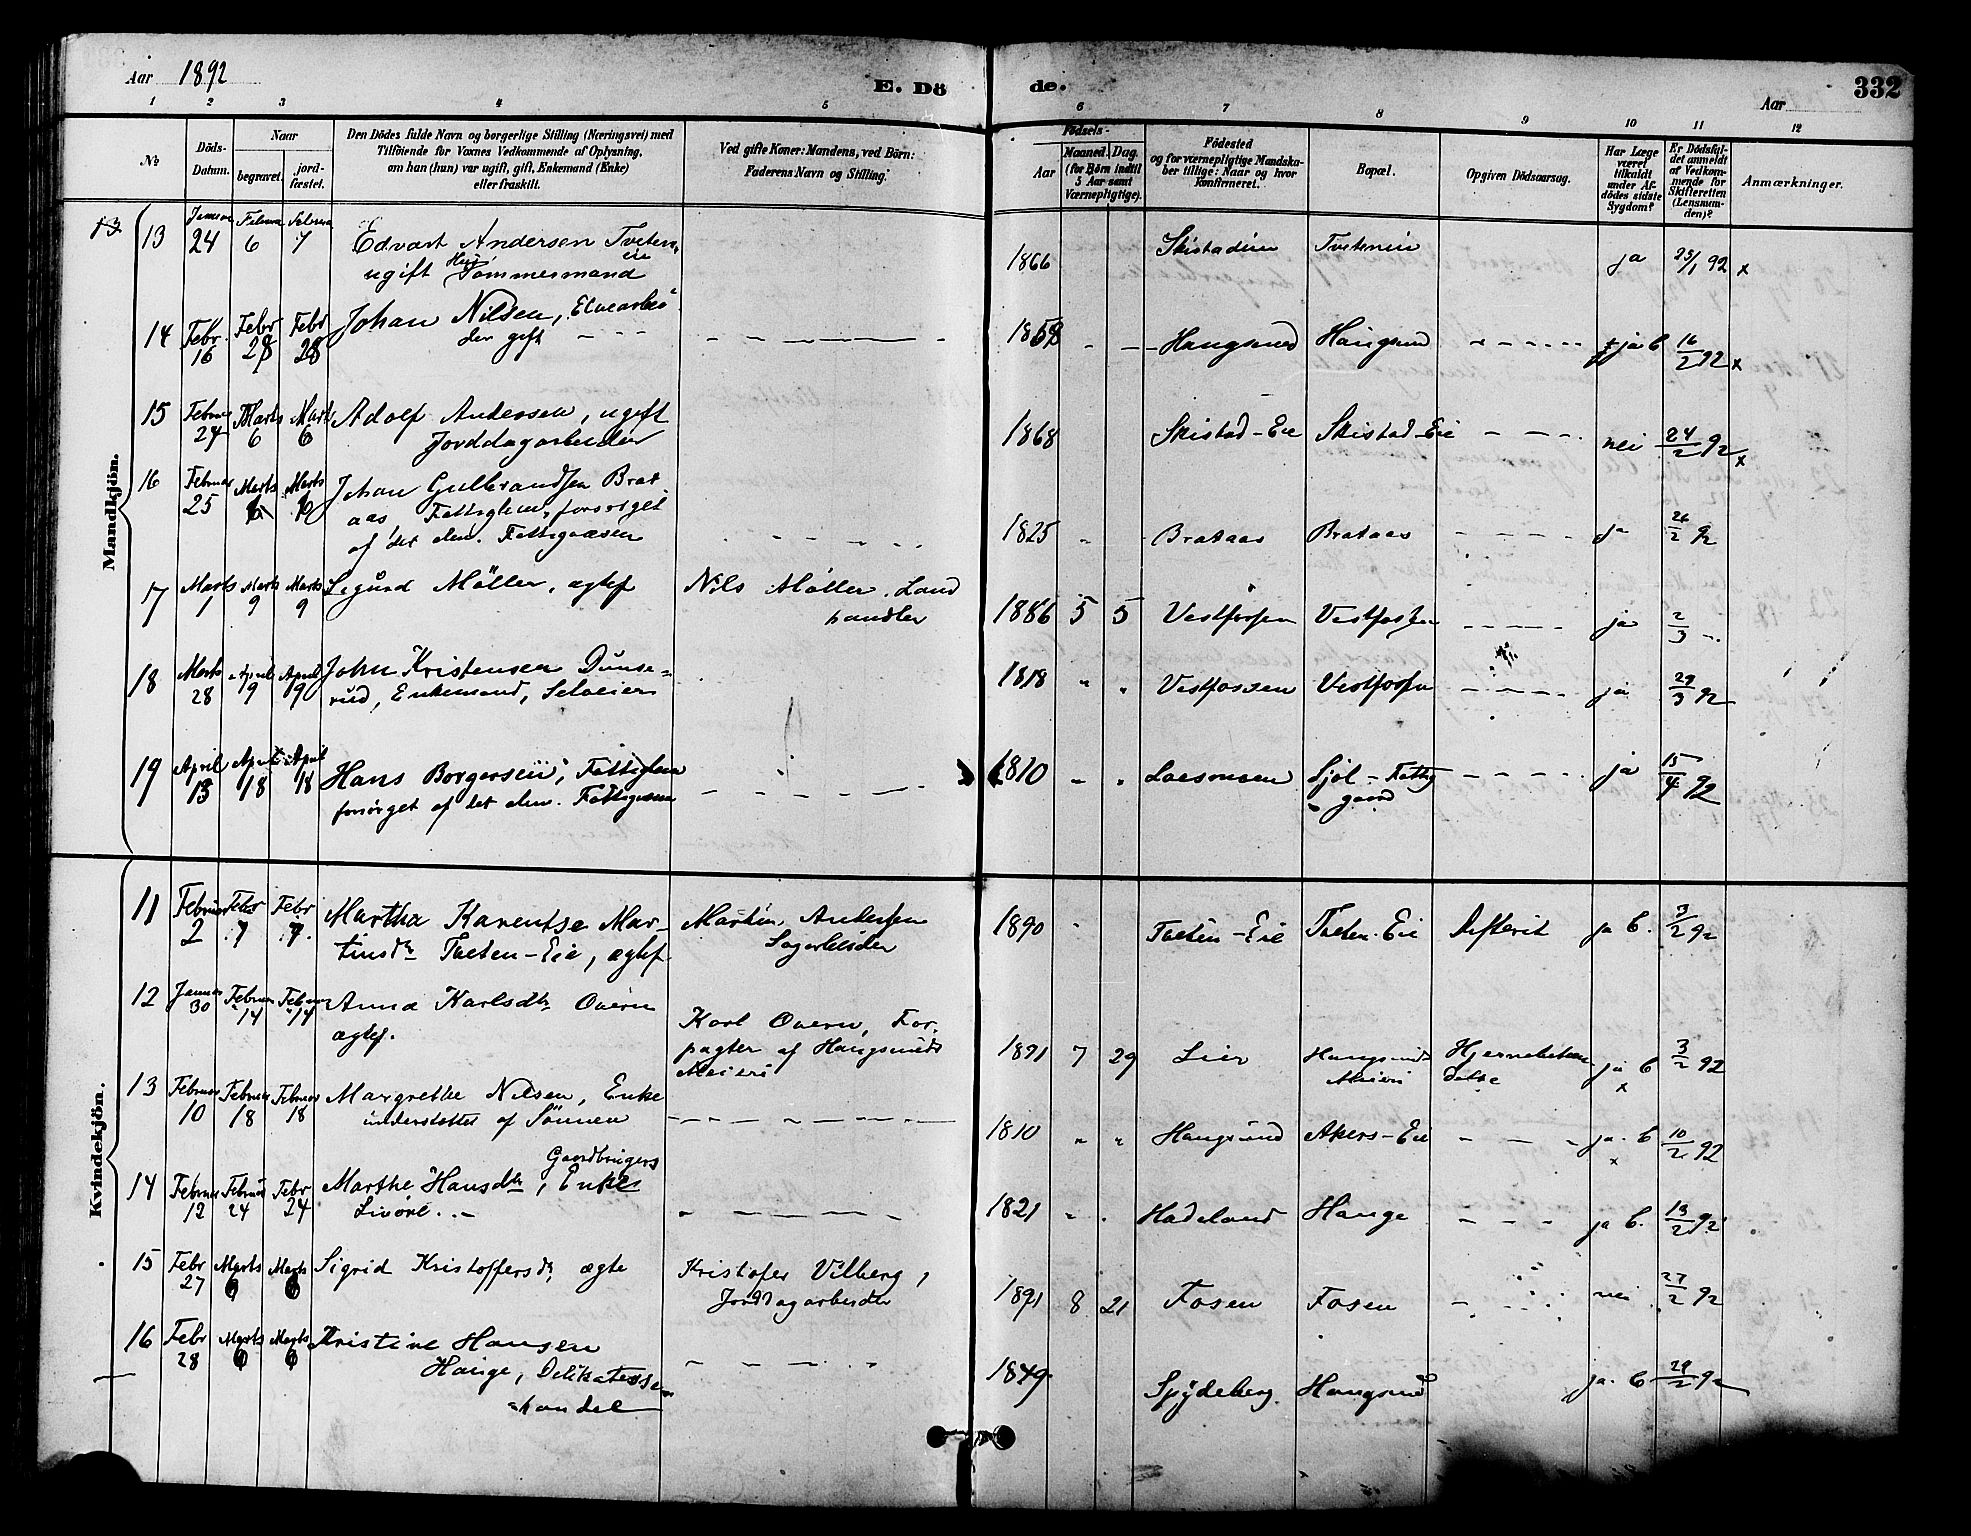 Aar 1892
E. Dö
de.
Aar
332
1 2 3 4 5 6 7 8 9 10 11 12
No
Döds-
Datum.
Naar
begravet.
jord-
fæstet.
Den Dödes fulde Navn og borgerlige Stilling (Næringsvei) med
Tilföiende for Voxnes Vedkommende af Oplysning,
om han (hun) var ugift, gift, Enkemand (Enke)
eller fraskilt.
Ved gifte Koner: Mandens, ved Börn:
Faderens Navn og Stilling.
Födsels-
Aar
Maaned.
Dag.
(for Börn indtil
5 Aar samt
Værnepligtige).
Födested
og for værnepligtige Mandska-
ber tillige: Naar og hvor
Konfirmeret.
Bopæl.
Opgiven Dödsaarsag.
Har Læge
været
tilkaldt
under Af-
dödes sidste
Sygdom?
Er Dödsfal-
det anmeldt
af Vedkom-
mende for
Skifteretten
(Lensman-
den)?
Anmærkninger.
Mandkjön.
13 24 6 7 Edvart Andersen Tveten
eie
ugift Tömmermand
1866 Tveteneie ja 25/1 92 x
14 Febr 16 Febr 28 Febr 28 Johan Nilsen, Elvearbei
der gift
Haugsund Haugsund ja b 16/2 92 x
15 Februar 24 Marts 6 Marts 6 Adolf Andersen, ugift
Jorddagarbeider
1868 Skistad-Eie Skistad-Eie nei 24/2 92 x
16 Februar 25 Marts 6 Marts 6 Johan Gulbrandsen Brat
aas Fattiglem, forsörget
af det alm. Fattigvæsen
1825 Brataas Brataas ja 26/2 92
17 Marts 1 Marts 9 Marts 9 Sigurd Möller, ægtef Nils Möller, Land
handler
1886 5 5 Vestfossen Vestfossen ja 2/3
18 Marts 28 April 19 April 19 John Kristensen Dunse-
rud, Enkemand, Selveier
1818 " " Vestfossen Vestfossen ja 29/3 92
19 April 13 April 18 April 18 Hans Borgersen, Fattiglem
forsörget af det alm. Fattigvæsen
1810 " " Sjöl-Fattig
gaard
ja 15/4 92
Kvindekjön.
11 Februar 2 Febr 7 Febr 7. Martha Karentse Mar-
tinsdr Tveten-Eie, ægtef
Martin Andersen
Sagarbeider
1890 " Tveten-Eie Tveten-Eie Difterit ja b. 3/2 92
12 Januar 30 Februar 14 Februar 14 Anna Karlsdtr Overn
ægtef.
Karl Overn, For-
pagter af Haugsunds
Meieri
1891 7 29 Lier Haugsunds
Meieri
Hjernebetæn
delse
ja b x 3/2 92
13 Februar 10 Februar 18 Februar 18 Margrethe Nilsen, Enke
understöttet af Sönnen
1810 " " Haugsund Akers-Eie ja. b x 10/2 92
14 Februar 12 Februar 24 Febr 24 Marthe Hansdtr, Gaardbrugers
Enke
1821 Hadeland Hauge ja b. 13/2 92
15 Febr 27 Marts 6 Marts 6 Sigrid Kristoffersdr, ægte Kristofer Vilberg,
Jorddagarbeider
1891 8 21 Fosen Fosen nei 27/2 92
16 Febr 28 Marts 6 Marts 6 Kristine Hansen
Hauge, Delikatesse-
handel
1849 Spydeberg. Haugsund ja. b 29/2 92